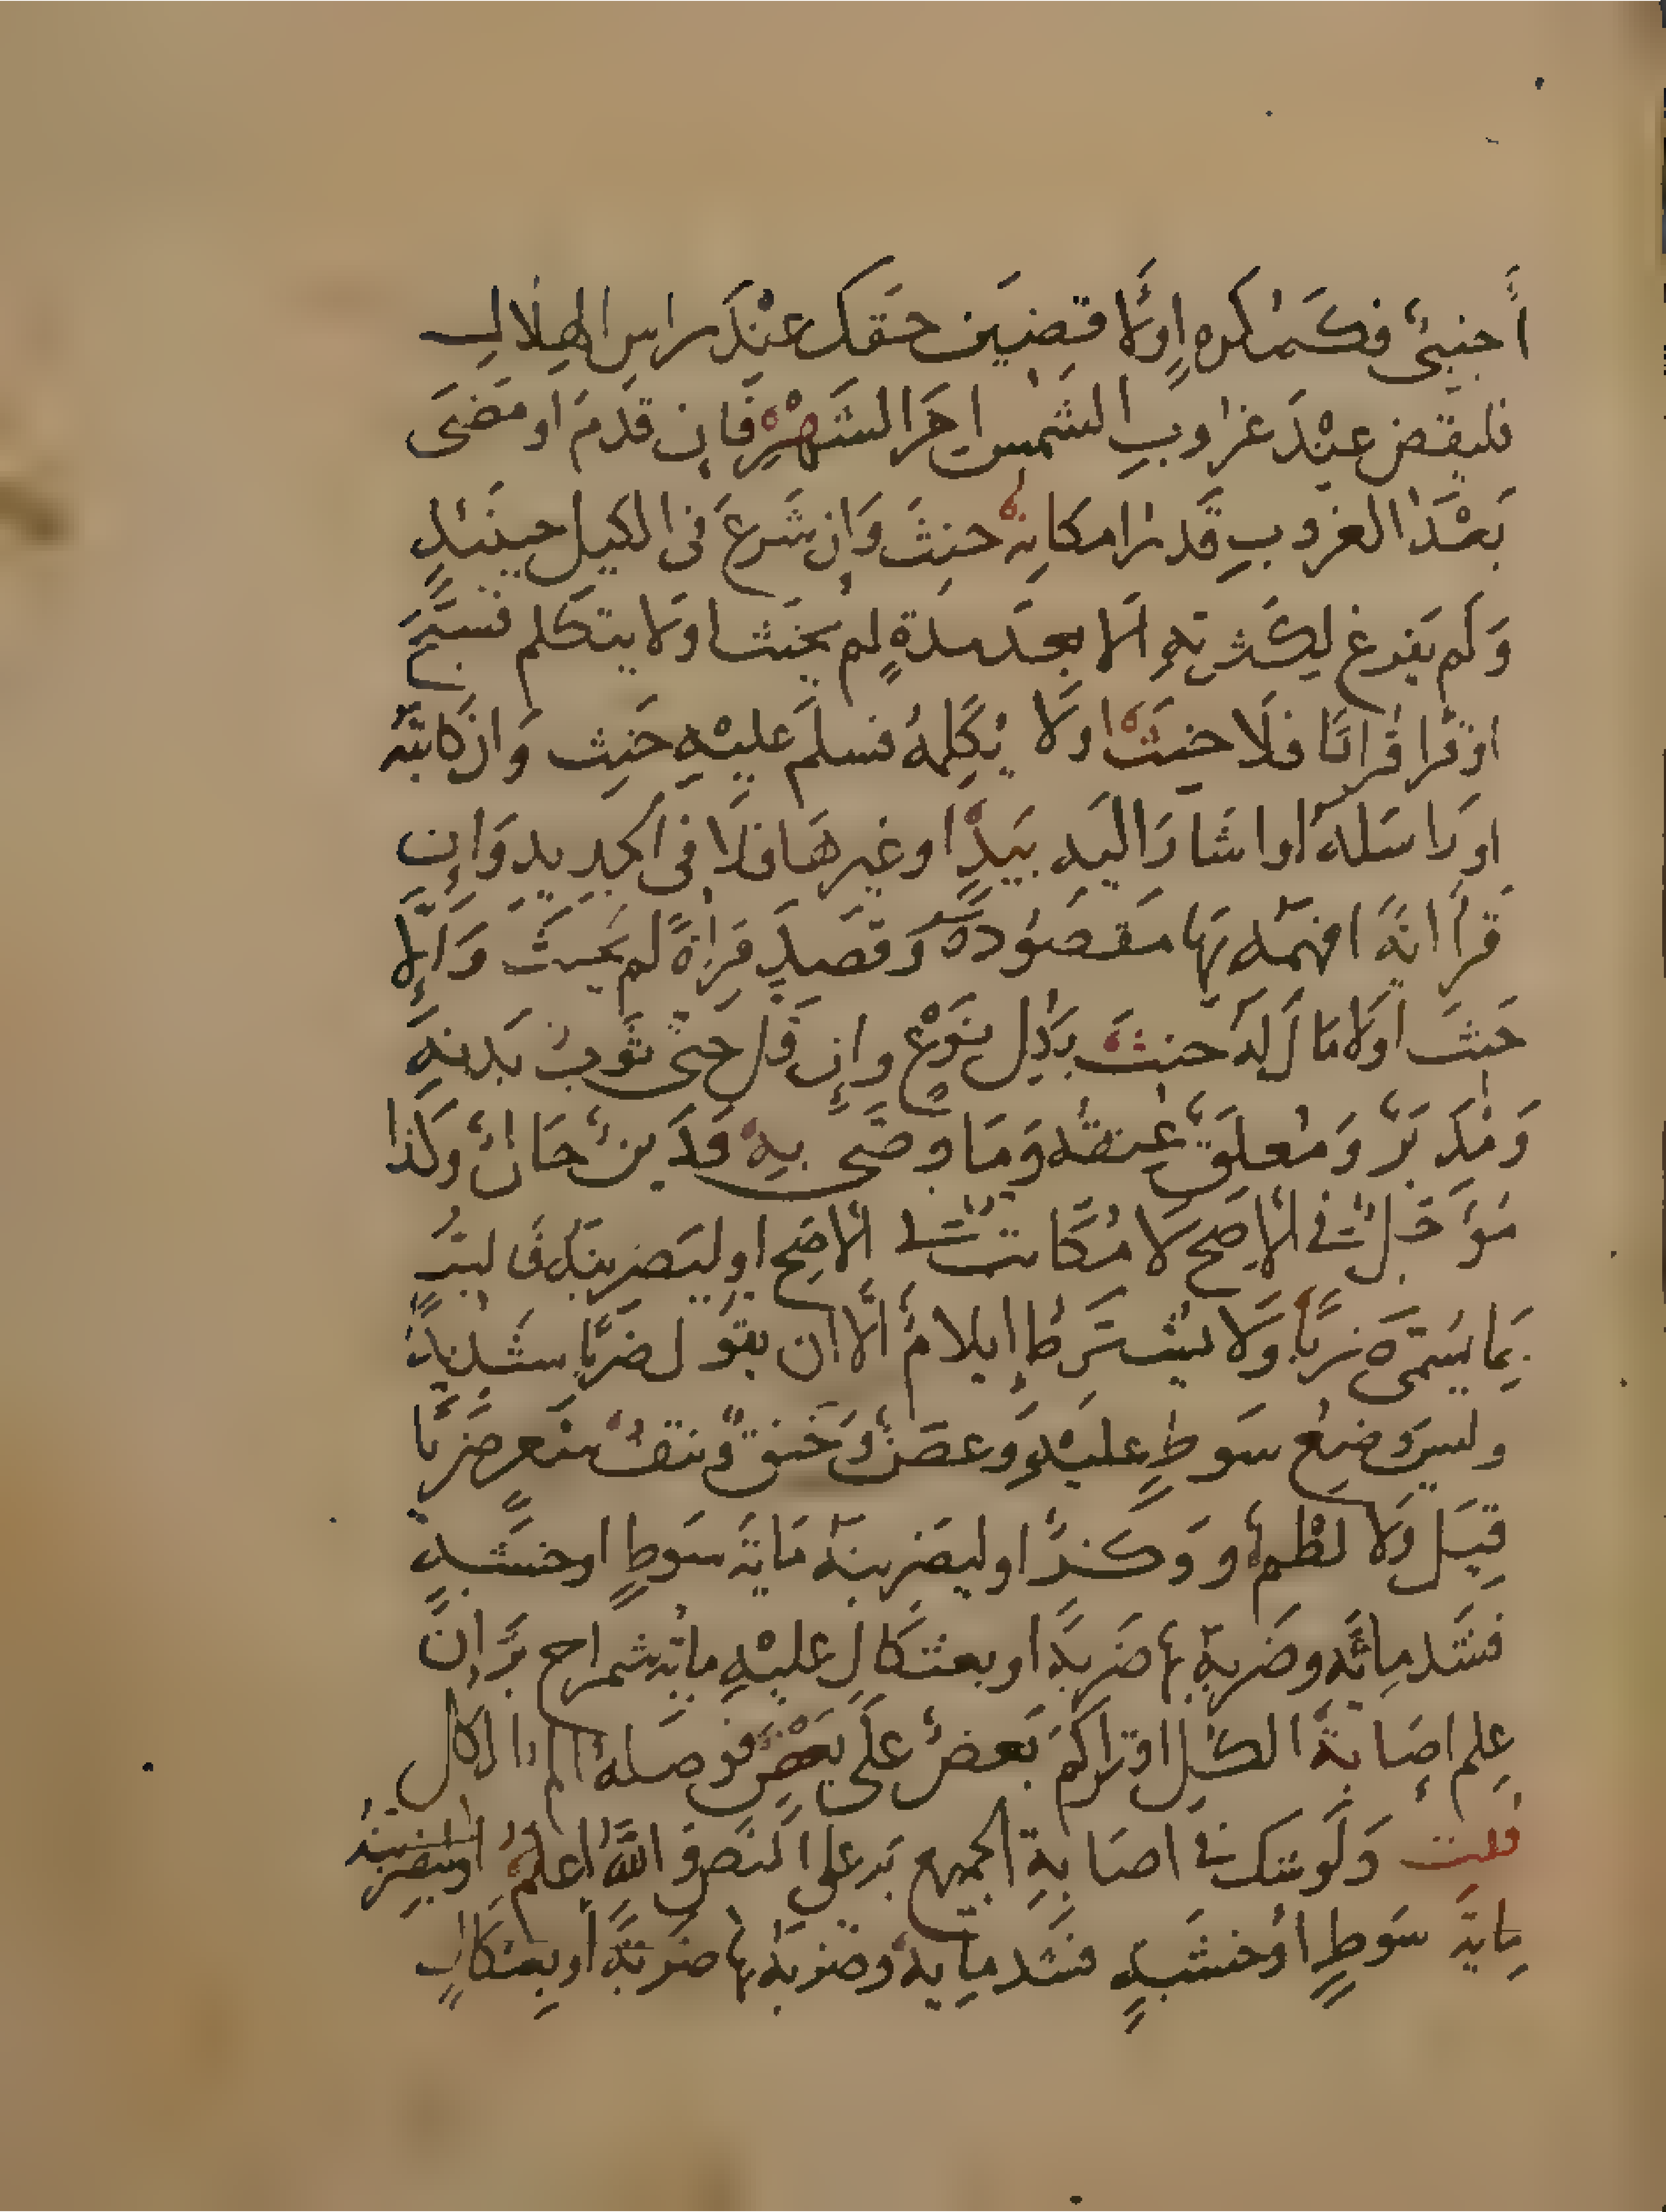 أجنبيٌّ فكمكره اولا قضين حقك عند راس الهلال
فليقض عند غروب الشمس اخر الشهر فان قدم او مضى
بعد الغروب قدر امكانه حنث وان شرع في الكيل حينئذ
ولم يفرغ لكثرته الا بعد مدة لم يحنث اولا يتكلم فسبح
او قرا قرانا فلا حنث اولا يكلمه فسلم عليه حنث وان كاتبه
او راسله او اشار اليه بيد او غيرها فلا في الجديد وان
قرا اية افهمه بها مقصوده وقصد قراة لم يحنث والا
حنث اولا مال له حنث بكل نوع وان قل حتى ثوب بدنه
ومدبر ومعلق عتقه وما وصى به ودين حال وكذا
مؤجل في الاصح لا مكاتب في الاصح او ليضربنه فالبر
بما يسمى ضربا ولا يشترط ايلام الا ان يقول ضربا شديدا
وليس وضع سوط عليه وعض وخنق ونتف شعر ضربا
قيل ولا لطم ووكز او ليضربنه ماية سوط او خشبة
فشد مائة وضربه بها ضربة او بعثكال عليه ماية شمراخ بر ان
علم اصابة الكل او تراكم بعض على بعض فوصله الم الكل
قلت ولو شك في اصابة الجميع بر على النص والله اعلم او ليضربنه
ماية سوط او خشبة فشد ماية وضربه بها ضربة او بعثكال